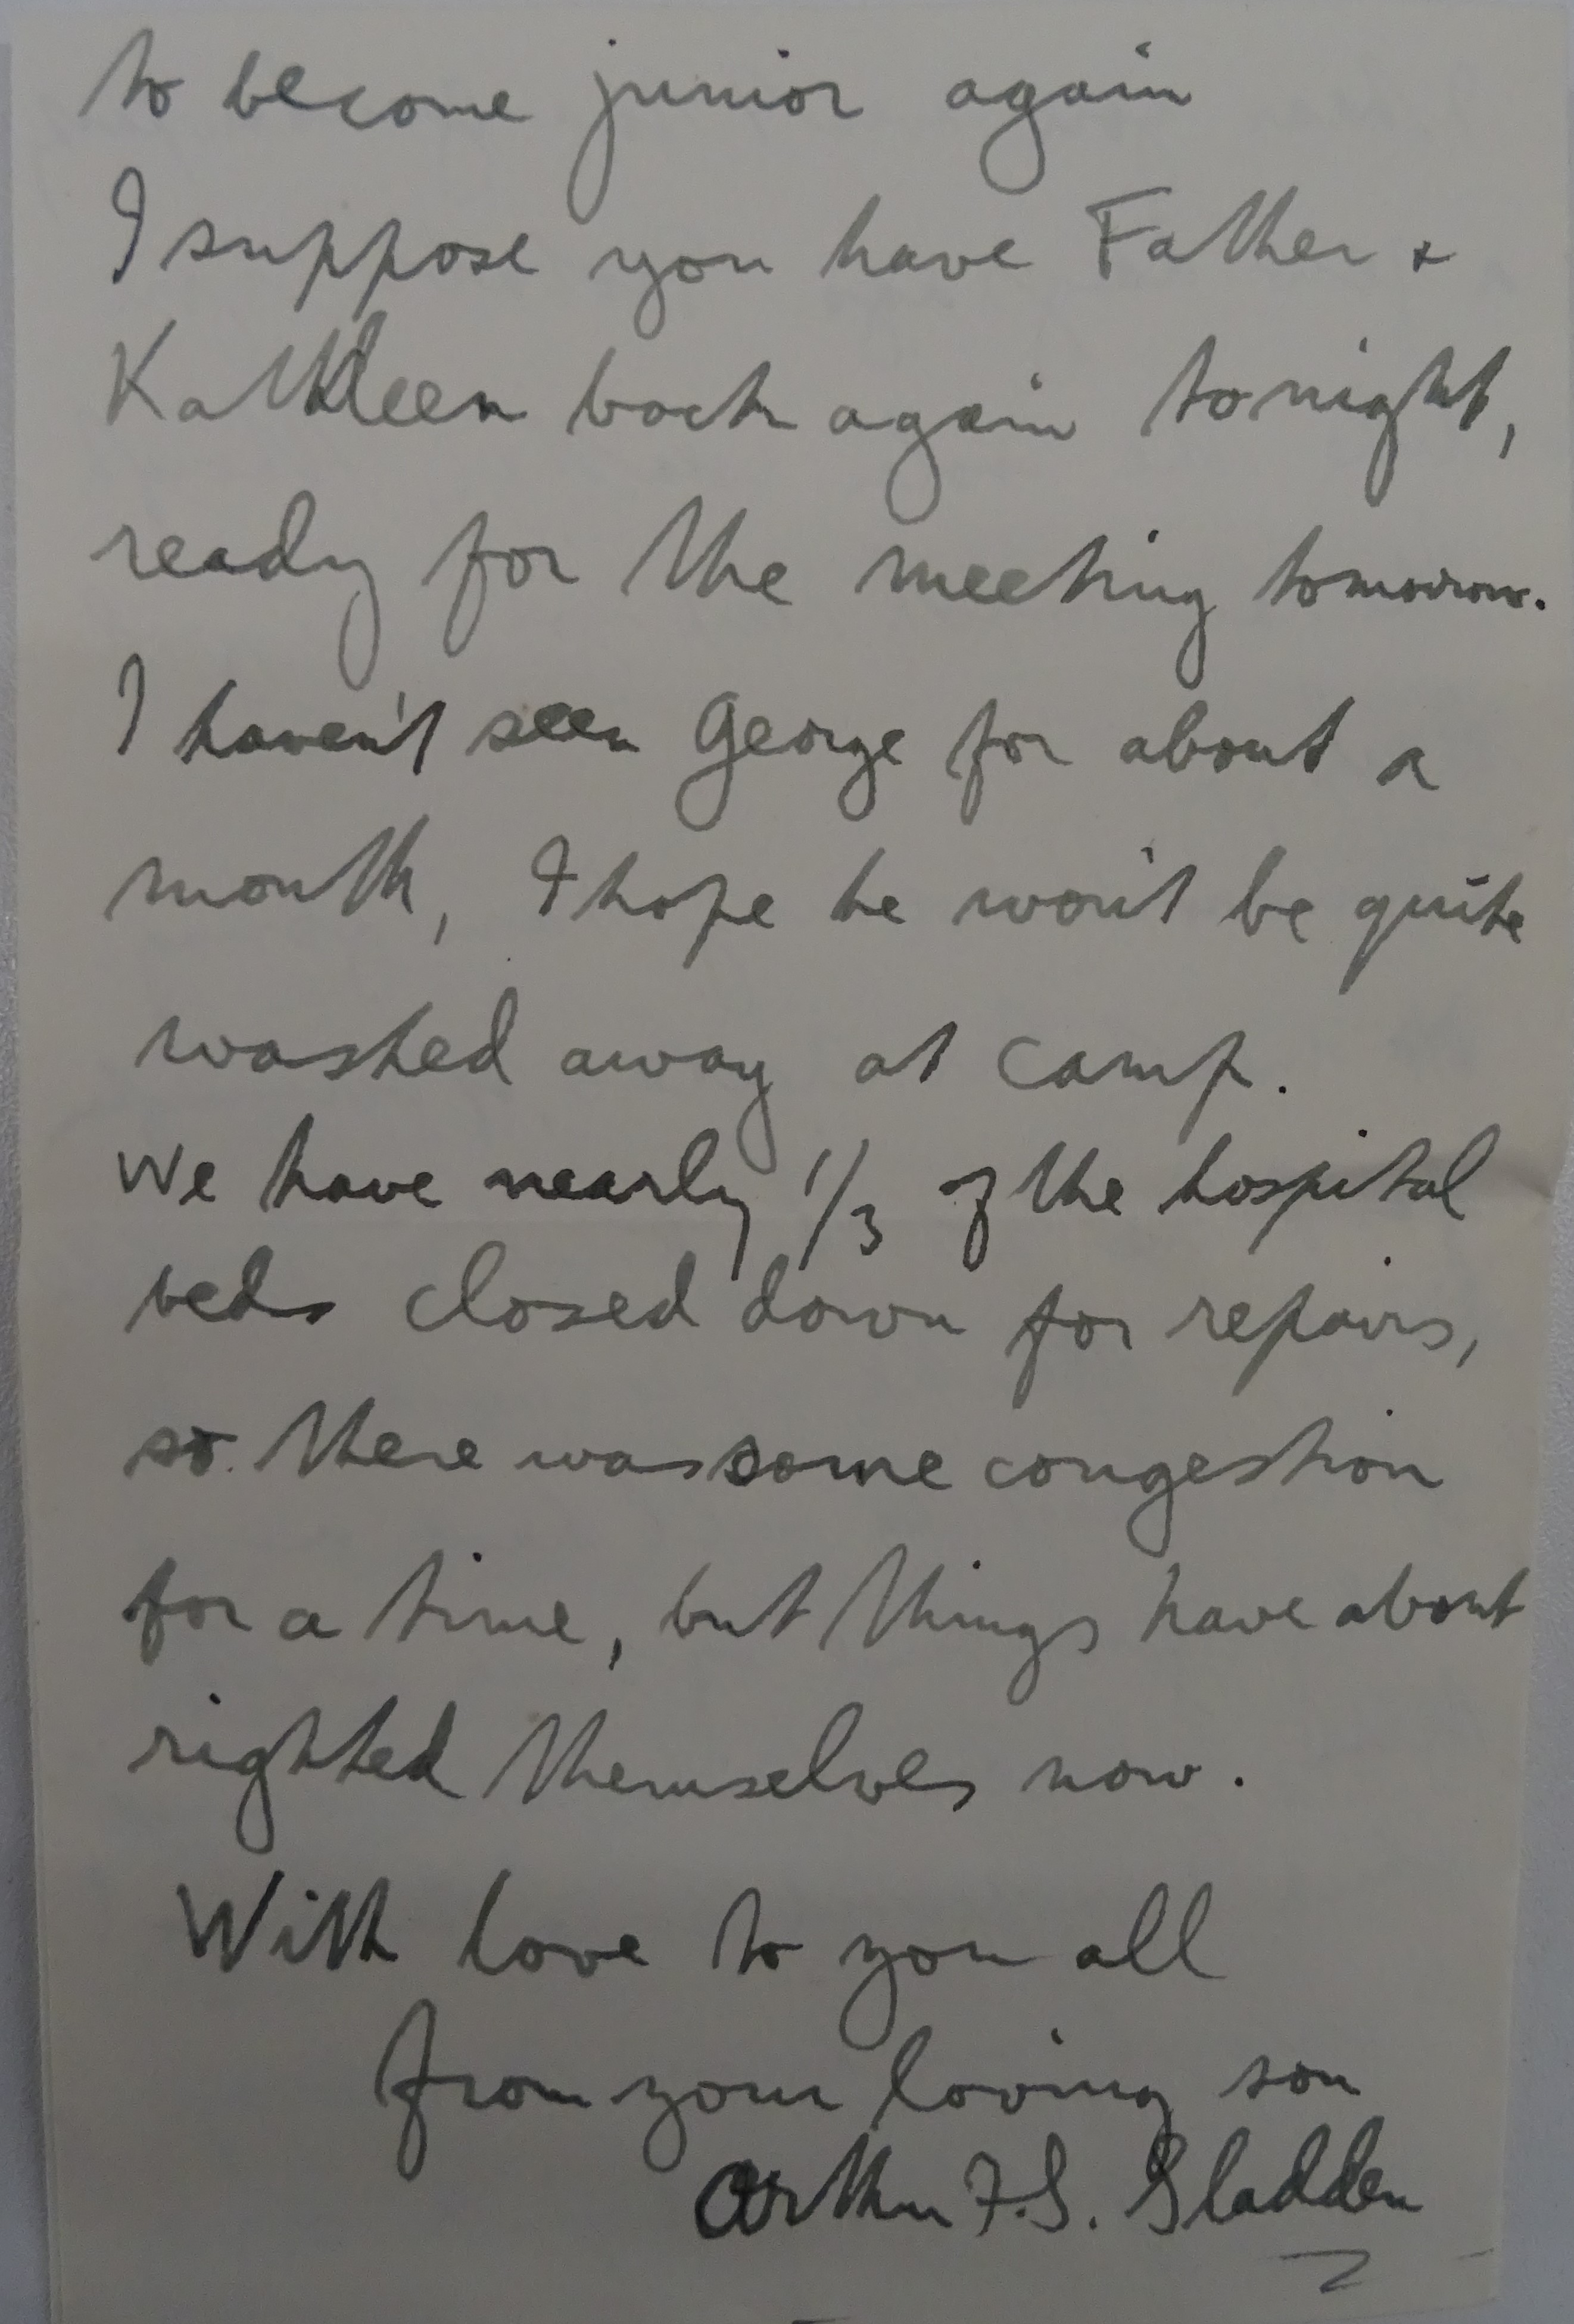 to become junior again
I suppose you have Father &
Kathleen back again tonight,
ready for the meeting tomorrow.
I haven't seen George for about a
month, I hope he won't be quite
washed away at camp.
We have nearly 1/3 of the hospital
beds closed down for repairs,
so there was some congestion
for a time, but things have about
righted themselves now.
With love to you all
from your loving son
Arthur F.S. Sladden